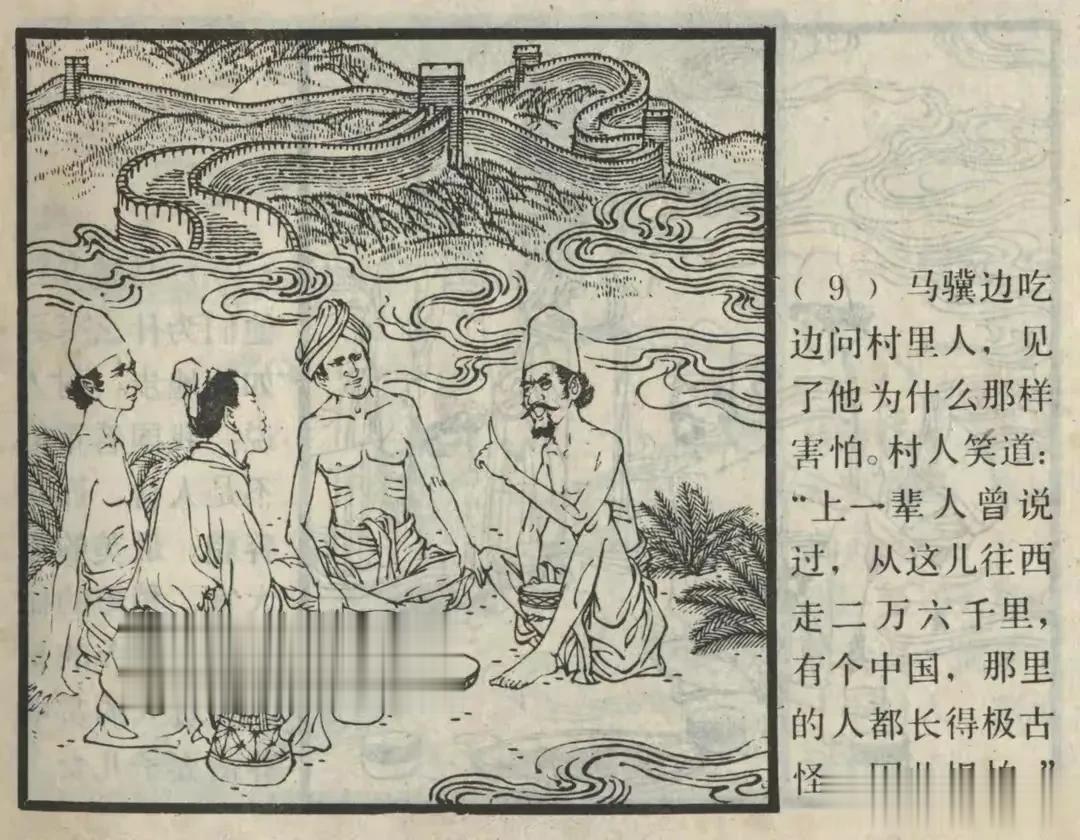 （9）马骥边吃
边问村里人，见
了他为什么那样
害怕。村人笑道：
“上一辈人曾说
过，从这儿往西
走二万六千里，
有个中国，那里
的人都长得极古
怪